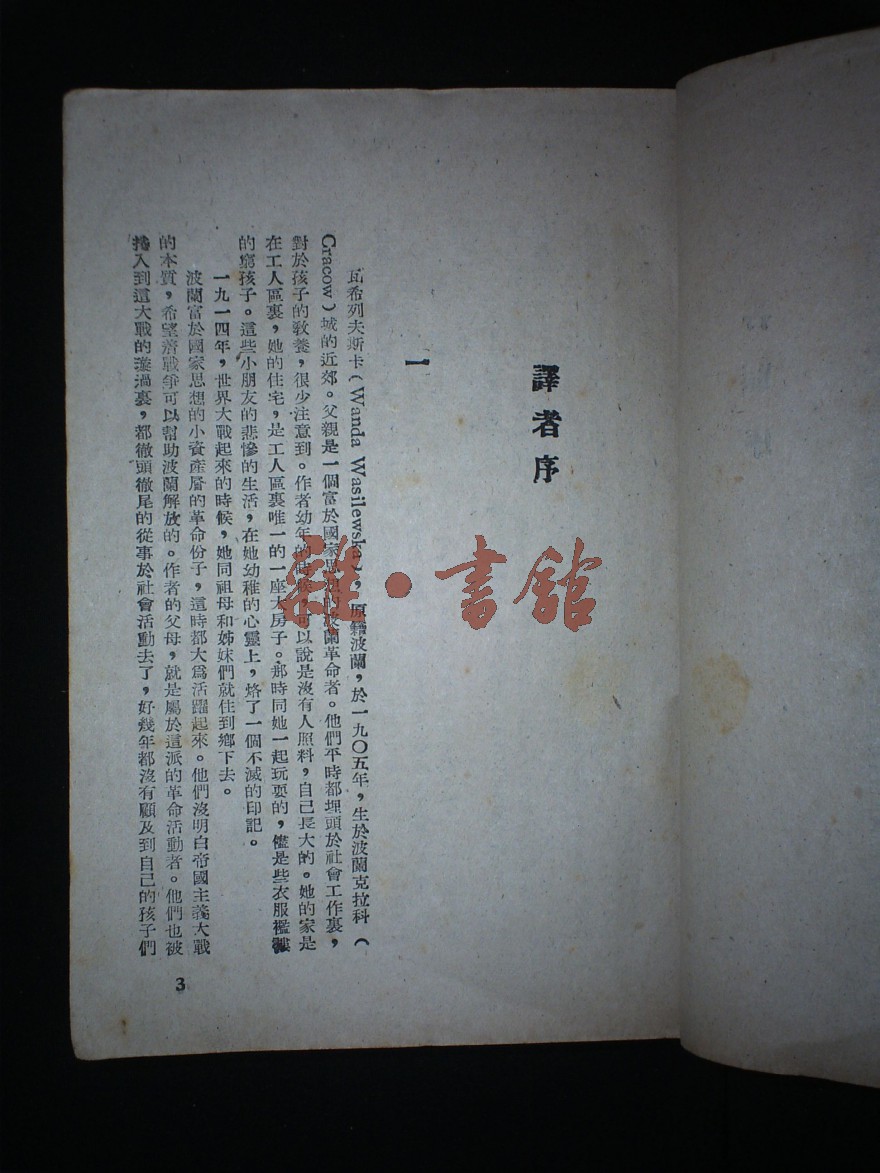 譯者序
一
瓦希列夫斯卡(Wanda Wasilewska),原籍波蘭,於一九〇五年,生於波蘭克拉科(
Cracow)城的近郊。父親是一個富於國家思想的波蘭革命者。他們平時都埋頭於社會工作裏,
對於孩子的教養,很少注意到。作者幼年的時候,可以說是沒有人照料,自己長大的。她的家是
在工人區裏,她的住宅,是工人區裏唯一的一座大房子。那時同她一起玩耍的,儘是些衣服襤褸
的窮孩子。這些小朋友的悲慘的生活,在她幼稚的心靈上,烙了一個不滅的印記。
一九一四年,世界大戰起來的時候,她同祖母和姊妹們就住到鄉下去。
波蘭富於國家思想的小資產層的革命份子,這時都大爲活躍起來。他們沒明白帝國主義大戰
的本質,希望濟戰爭可以幫助波蘭解放的。作者的父母,就是屬於這派的革命活動者。他們也被
捲入到這大戰的漩渦裏,都徹頭徹尾的從事於社會活動去了,好幾年都沒有顧及到自己的孩子們
3
雜·書館